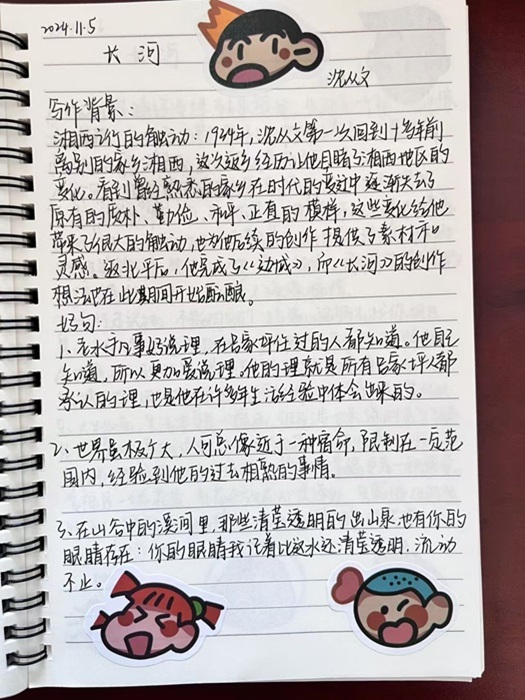 2024.11.5
长河
沈从文
写作背景：
湘西之行的触动：1934年，沈从文第一次回到十多年前
离别的家乡湘西，这次返乡经历让他目睹了湘西地区的
变化。看到曾经熟悉的家乡在时代的变迁中逐渐失去了
原有的质朴、勤俭、和平、正直的模样，这些变化给他
带来了很大的触动，也为他后续的创作提供了素材和
灵感。返北平后，他完成了《边城》，而《长河》的创作
想法也在此期间开始酝酿。
好句：
1、老水手凡事好说理，在吕家坪住过的人都知道。他自己
知道，所以更加爱说理。他的理就是所有吕家坪人都
承认的理，也是他在许多年生活经验中体会出来的。
2、世界虽极广大，人可总像近于一种宿命，限制在一定范
围内，经验到他的过去相熟的事情。
3、在山谷中的溪涧里，那些清莹透明的出山泉也有你的
眼睛存在：你的眼睛我记着比这水还清莹透明，流动
不止。